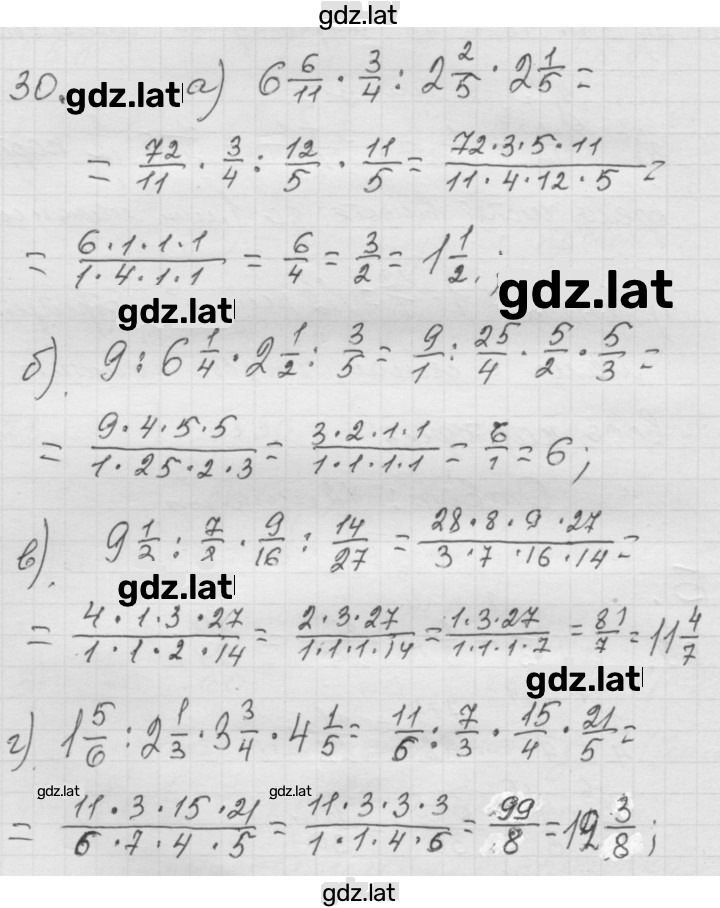 gdz.lat
30. gdz.lat а) 6 6/11 · 3/4 : 2 2/5 · 2 1/5 =
= 72/11 · 3/4 : 12/5 · 11/5 = 72·3·5·11/11·4·12·5 =
= 6·1·1·1/1·4·1·1 = 6/4 = 3/2 = 1 1/2;
gdz.lat gdz.lat
б). 9 : 6 1/4 · 2 1/2 : 3/5 = 9/1 : 25/4 · 5/2 · 5/3 =
= 9·4·5·5/1·25·2·3 = 3·2·1·1/1·1·1·1 = 6/1 = 6;
в). 9 1/2 : 7/8 · 9/16 : 14/27 = 28·8·9·27/3·7·16·14 =
gdz.lat
= 4·1·3·27/1·1·2·14 = 2·3·27/1·1·1·14 = 1·3·27/1·1·1·7 = 81/7 = 11 4/7
gdz.lat
г). 1 5/6 : 2 1/3 · 3 3/4 · 4 1/5 = 11/6 : 7/3 · 15/4 · 21/5 =
gdz.lat gdz.lat
= 11·3·15·21/6·7·4·5 = 11·3·3·3/1·1·4·6 = 99/8 = 12 3/8;
gdz.lat